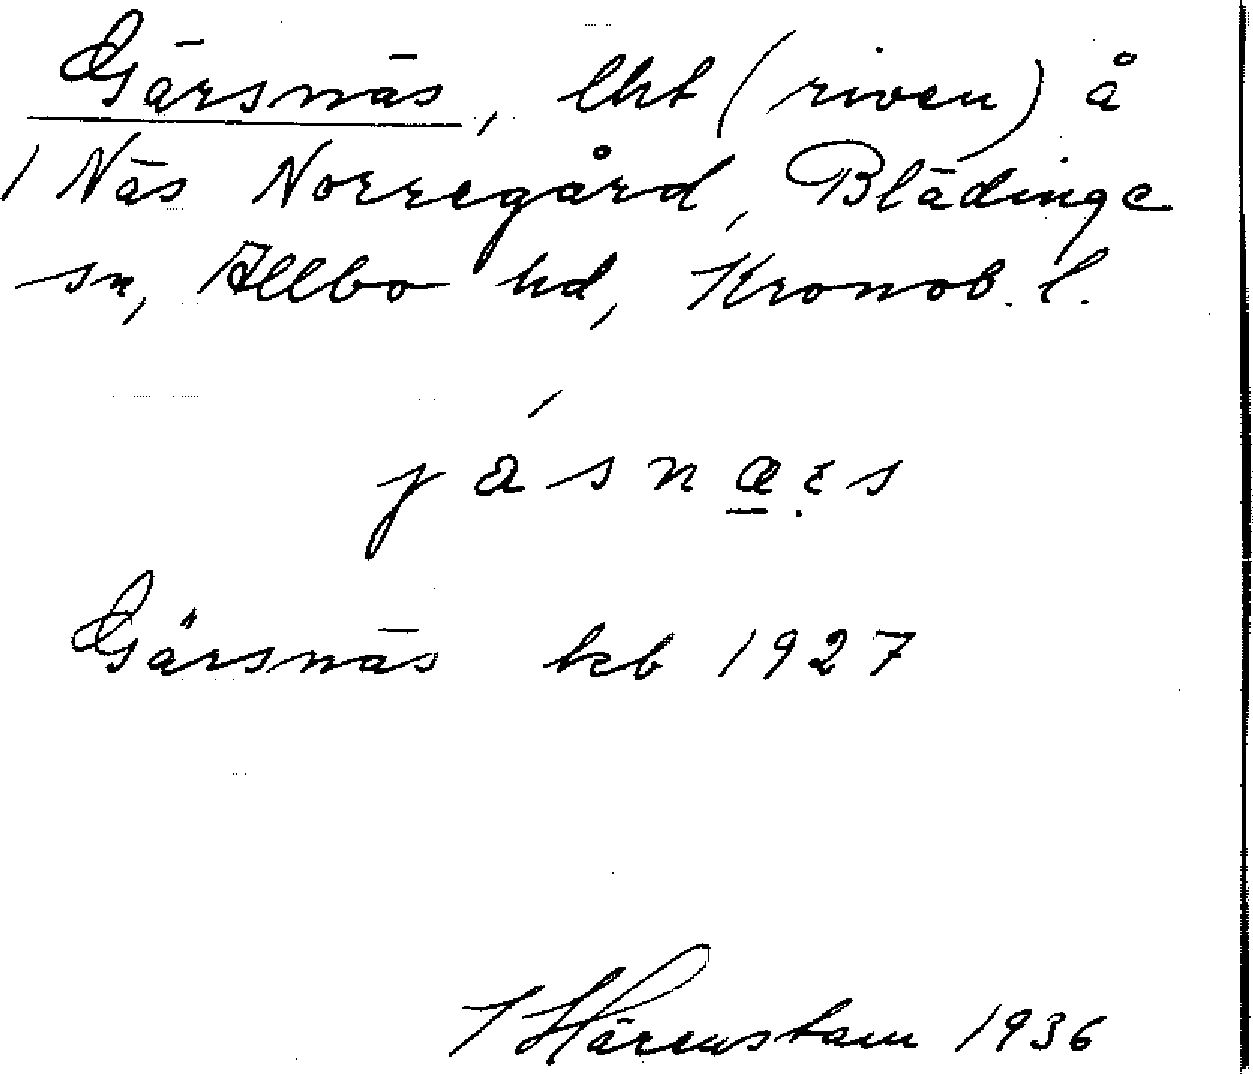 Gärsnäs, lht (riven) å
1 Näs Norregård, Blädinge
sn, Allbo hd, Kronob. l.
jásnæ̱ꞓ̣s
Gärsnäs kb 1927
J Härenstam 1936